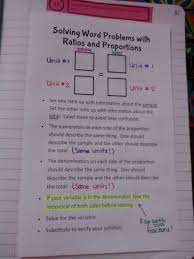 Solving Word Problems with
Ratios and Proportions
Unit #1
Unit #1
Unit #2
Unit #2
- Set one ratio up with information about the sample.
Set the other ratio up with information about the
total. Label these to avoid later confusion.
- The numerators on each side of the proportion
should describe the same thing. One should
describe the sample and the other should describe
the total. (Same units!)
- The denominators on each side of the proportion
should describe the same thing. One should
describe the sample and the other should describe
the total. (Same Units!)
- If your variable is in the denominator, take the
reciprocal of both sides before solving.
- Solve for the variable.
- Substitute to verify your solution.
Flip both
fractions!